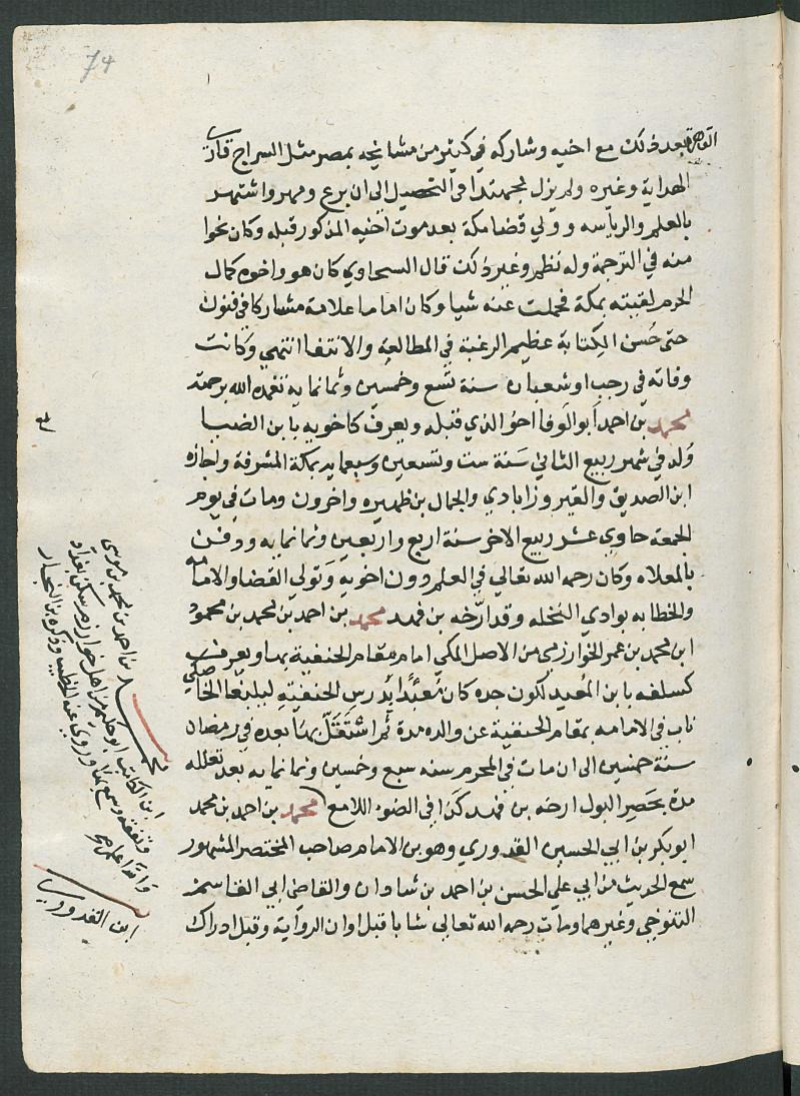 74
القاهرة بعد ذلك مع اخيه وشاركه في كثير من مشايخه بمصر مثل السراج قارئ
الهداية وغيره ولم يزل مجتهدا في التحصيل الى ان برع ومهر واشتهر
بالعلم والرياسه وولي قضا مكة بعد موت اخيه المذكور قبله وكان نحوا
منه في الترجمة وله نظم وغير ذلك قال السخاوي كان هو واخوه كمال
الحرم لقيته بمكة فحملت عنه شيا وكان اماما علامة مشاركا في فنون
حتى حُسن الكتابة عظيم الرغبة في المطالعة والانتقا انتهى وكانت
وفاته في رجب اوشعبان سنة تسع وخمسين وثمانمايه تغمده الله برحمته
محمد بن احمد ابو الوفا اخو الذي قبله ويعرف كاخويه بابن الضيا
وُلد في شهر ربيع الثاني سَنة ست وتسعين وسبعمايه بمكة المشرفة واجازه
ابن الصديق والفيروزابادي والجمال بن ظهيره واخرون ومات في يوم
الجمعه حادي عشر ربيع الاخر سنة اربع واربعين وثمانمايه ودفن
بالمعلاه وكان رحمه الله تعالى في العلم دون اخويه وَتولي القضا والامامه
والخطابه بوادي النخله وقد ارّخه بن فهد محمد بن احمد بن محمد بن محمود
ابن محمد بن عمر الخوارزمي من الاصل المكي امام مقام الحنفية بها ويعرف
كسلفه بابن المُعيد لكون جده كان مُعيدًا بدرس الحنفيتِه ليلبغا الخاصكي
ناب في الامامه بمقام الحنفية عن والده مدة ثم اشتَقَلّ بها بعده في رمضان
سنة خمسين الى ان مات في المحرم سنه سبع وخمسين وثمانمايه بعد تعلله
مدة بحَصرِ البول ارخه بن فهد كَذا في الضوء اللامع محمد بن احمد بن محمد
ابو بكر بن ابي الحسين القدوري وهو بن الامام صاحب المختصر المشهور
سمع الحديث من ابي علي الحسن بن احمد بن شادان والقاضي ابي القاسم
التنوخي وغيرهما ومات رحمه الله تعالى شابا قبل اوان الرواية وقبل ادراك
محمد بن احمد بن محمد بن موسى
ابن الكاتب ابو حكيم من اهل خوارزم سكن بغداد
وتفقه وسمع بها وروى عنه الخطيب وذكره بن النجار
والله اعلم
ابن القدوري